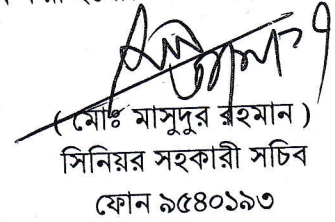 ( মোঃ মাসুদুর রহমান )
সিনিয়র সহকারী সচিব
ফোন ৯৫৪০১৯৩